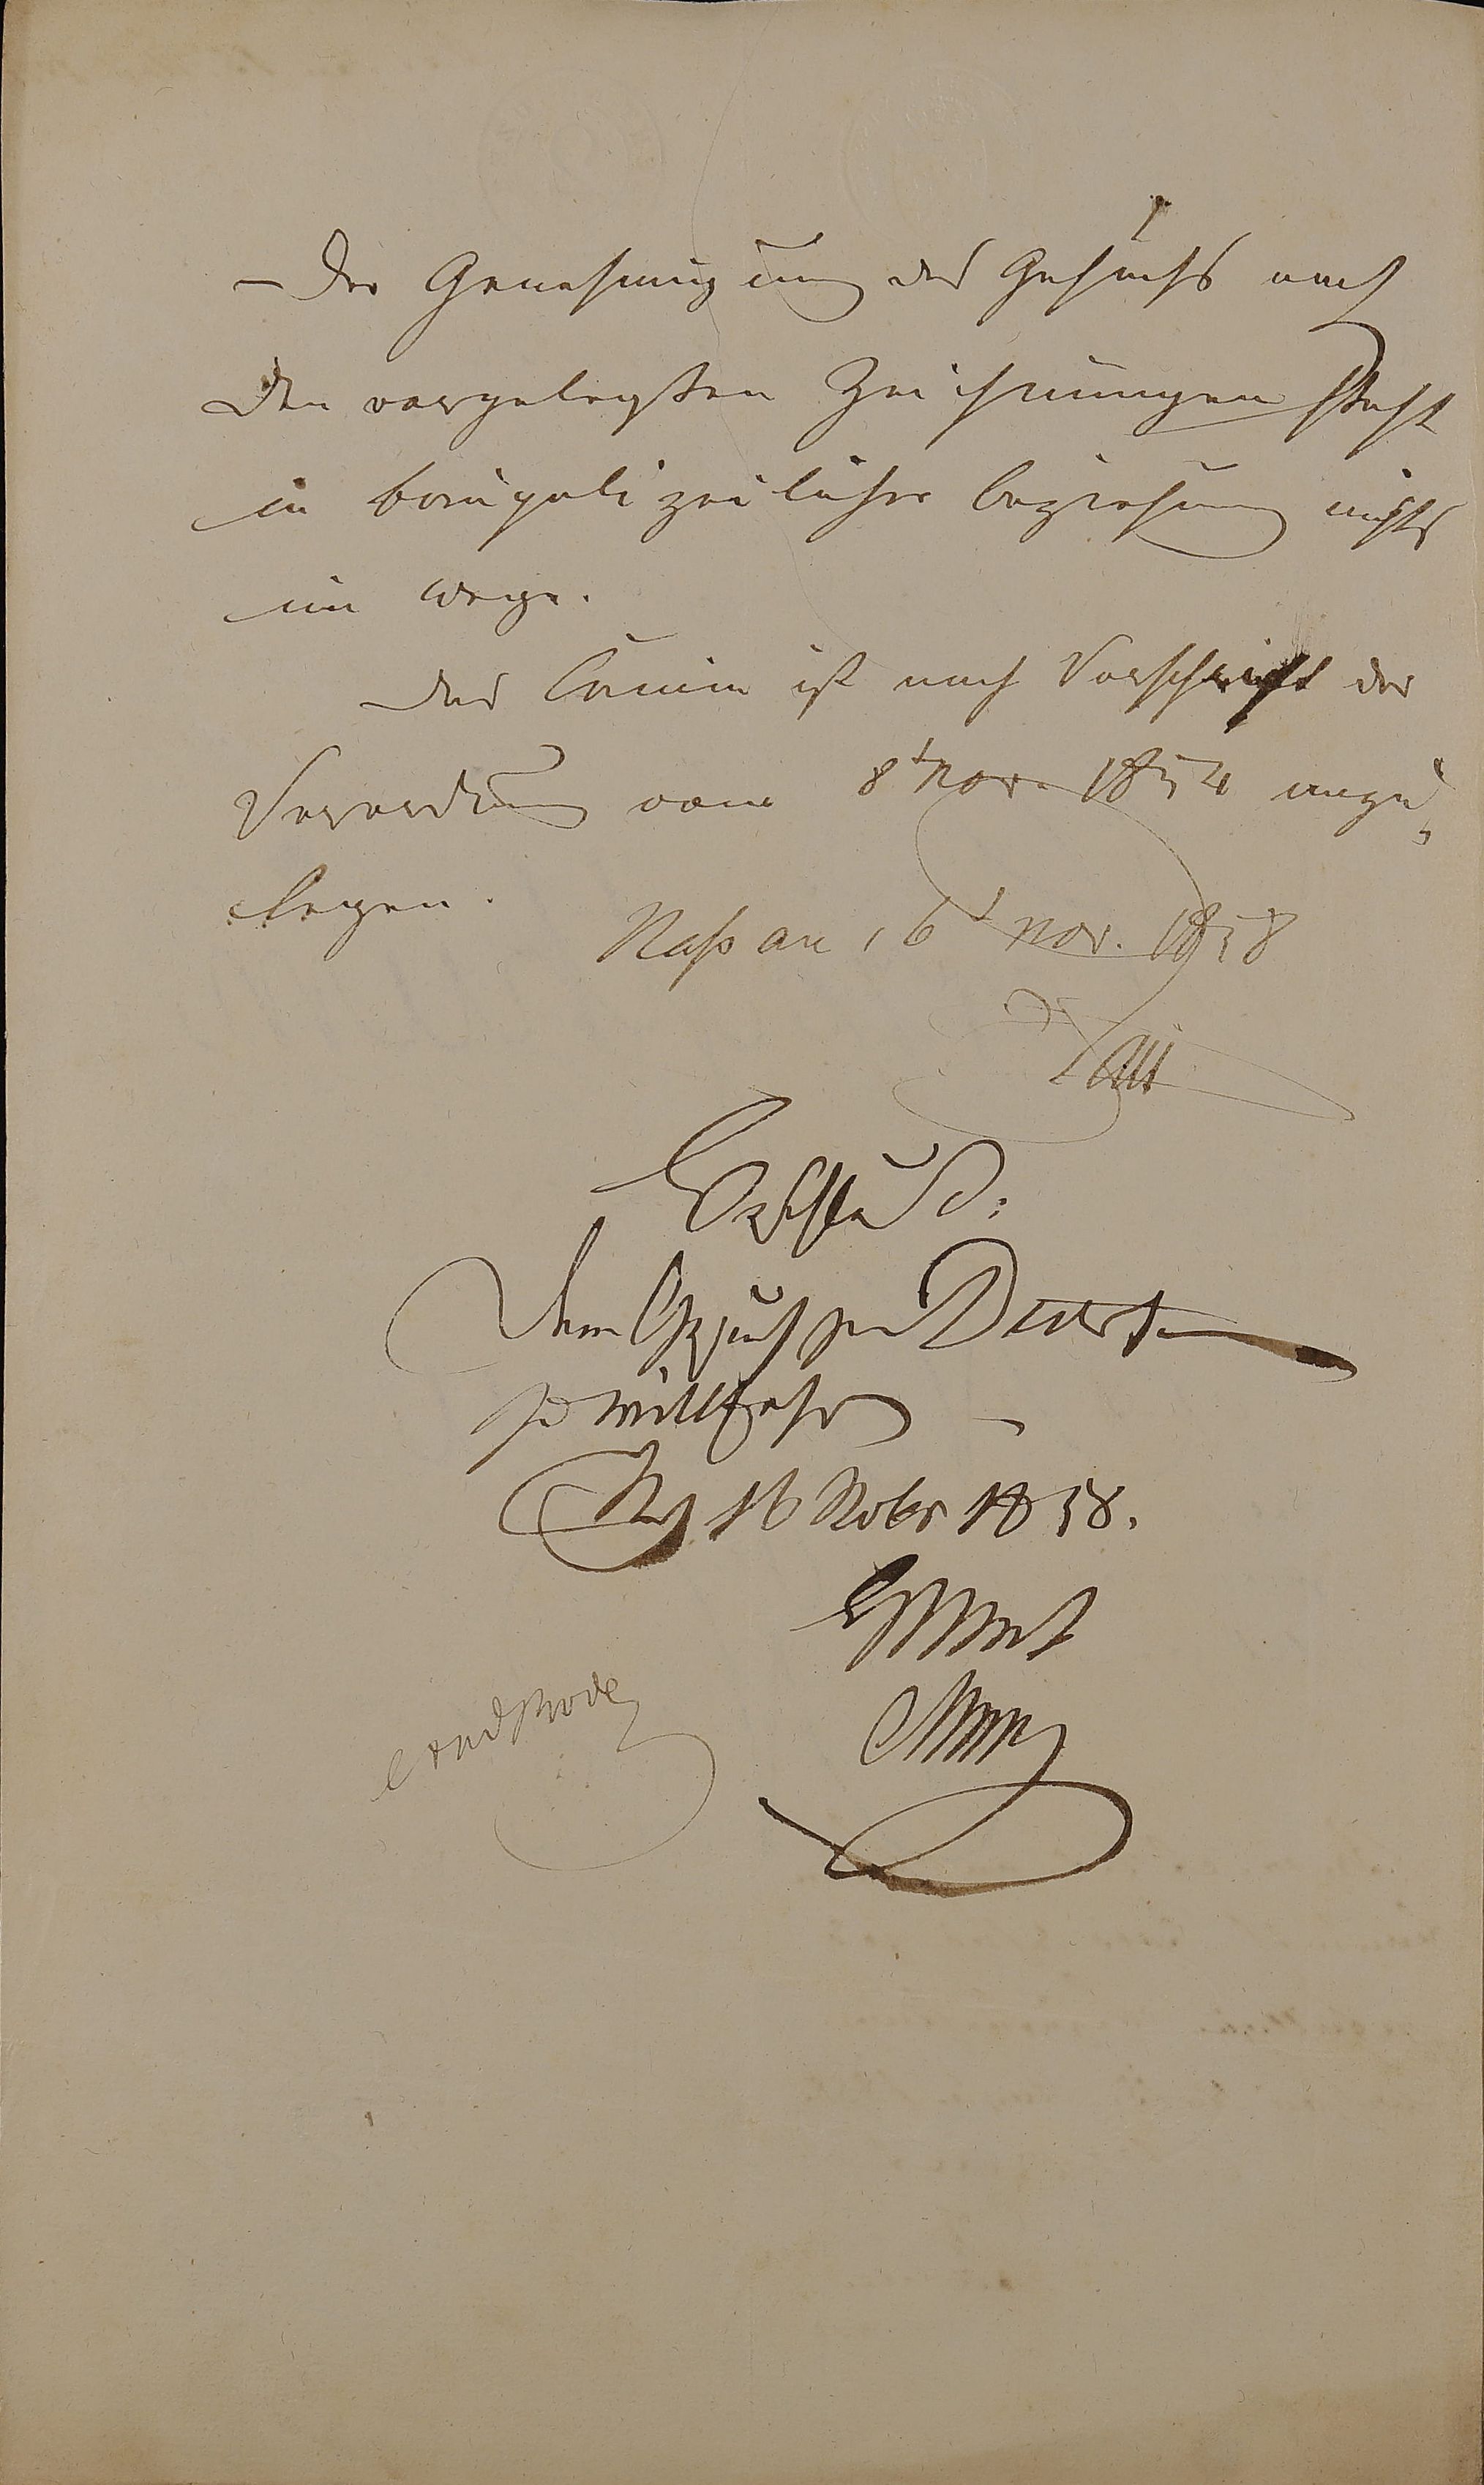 Der Genehmigung des Gesuchs nach
den vorgelegten Zeichnungen steht
in baupolizeilicher Beziehung nichts
im Wege.
Das Camin ist nach Vorschrift der
Verordnung vom 8t Nov. 1854 anzu
legen.
Nassau, 16t Nov. 1858
Beschluß:
Dem Gesuch
zu willfahren
16 Nobr 1858.